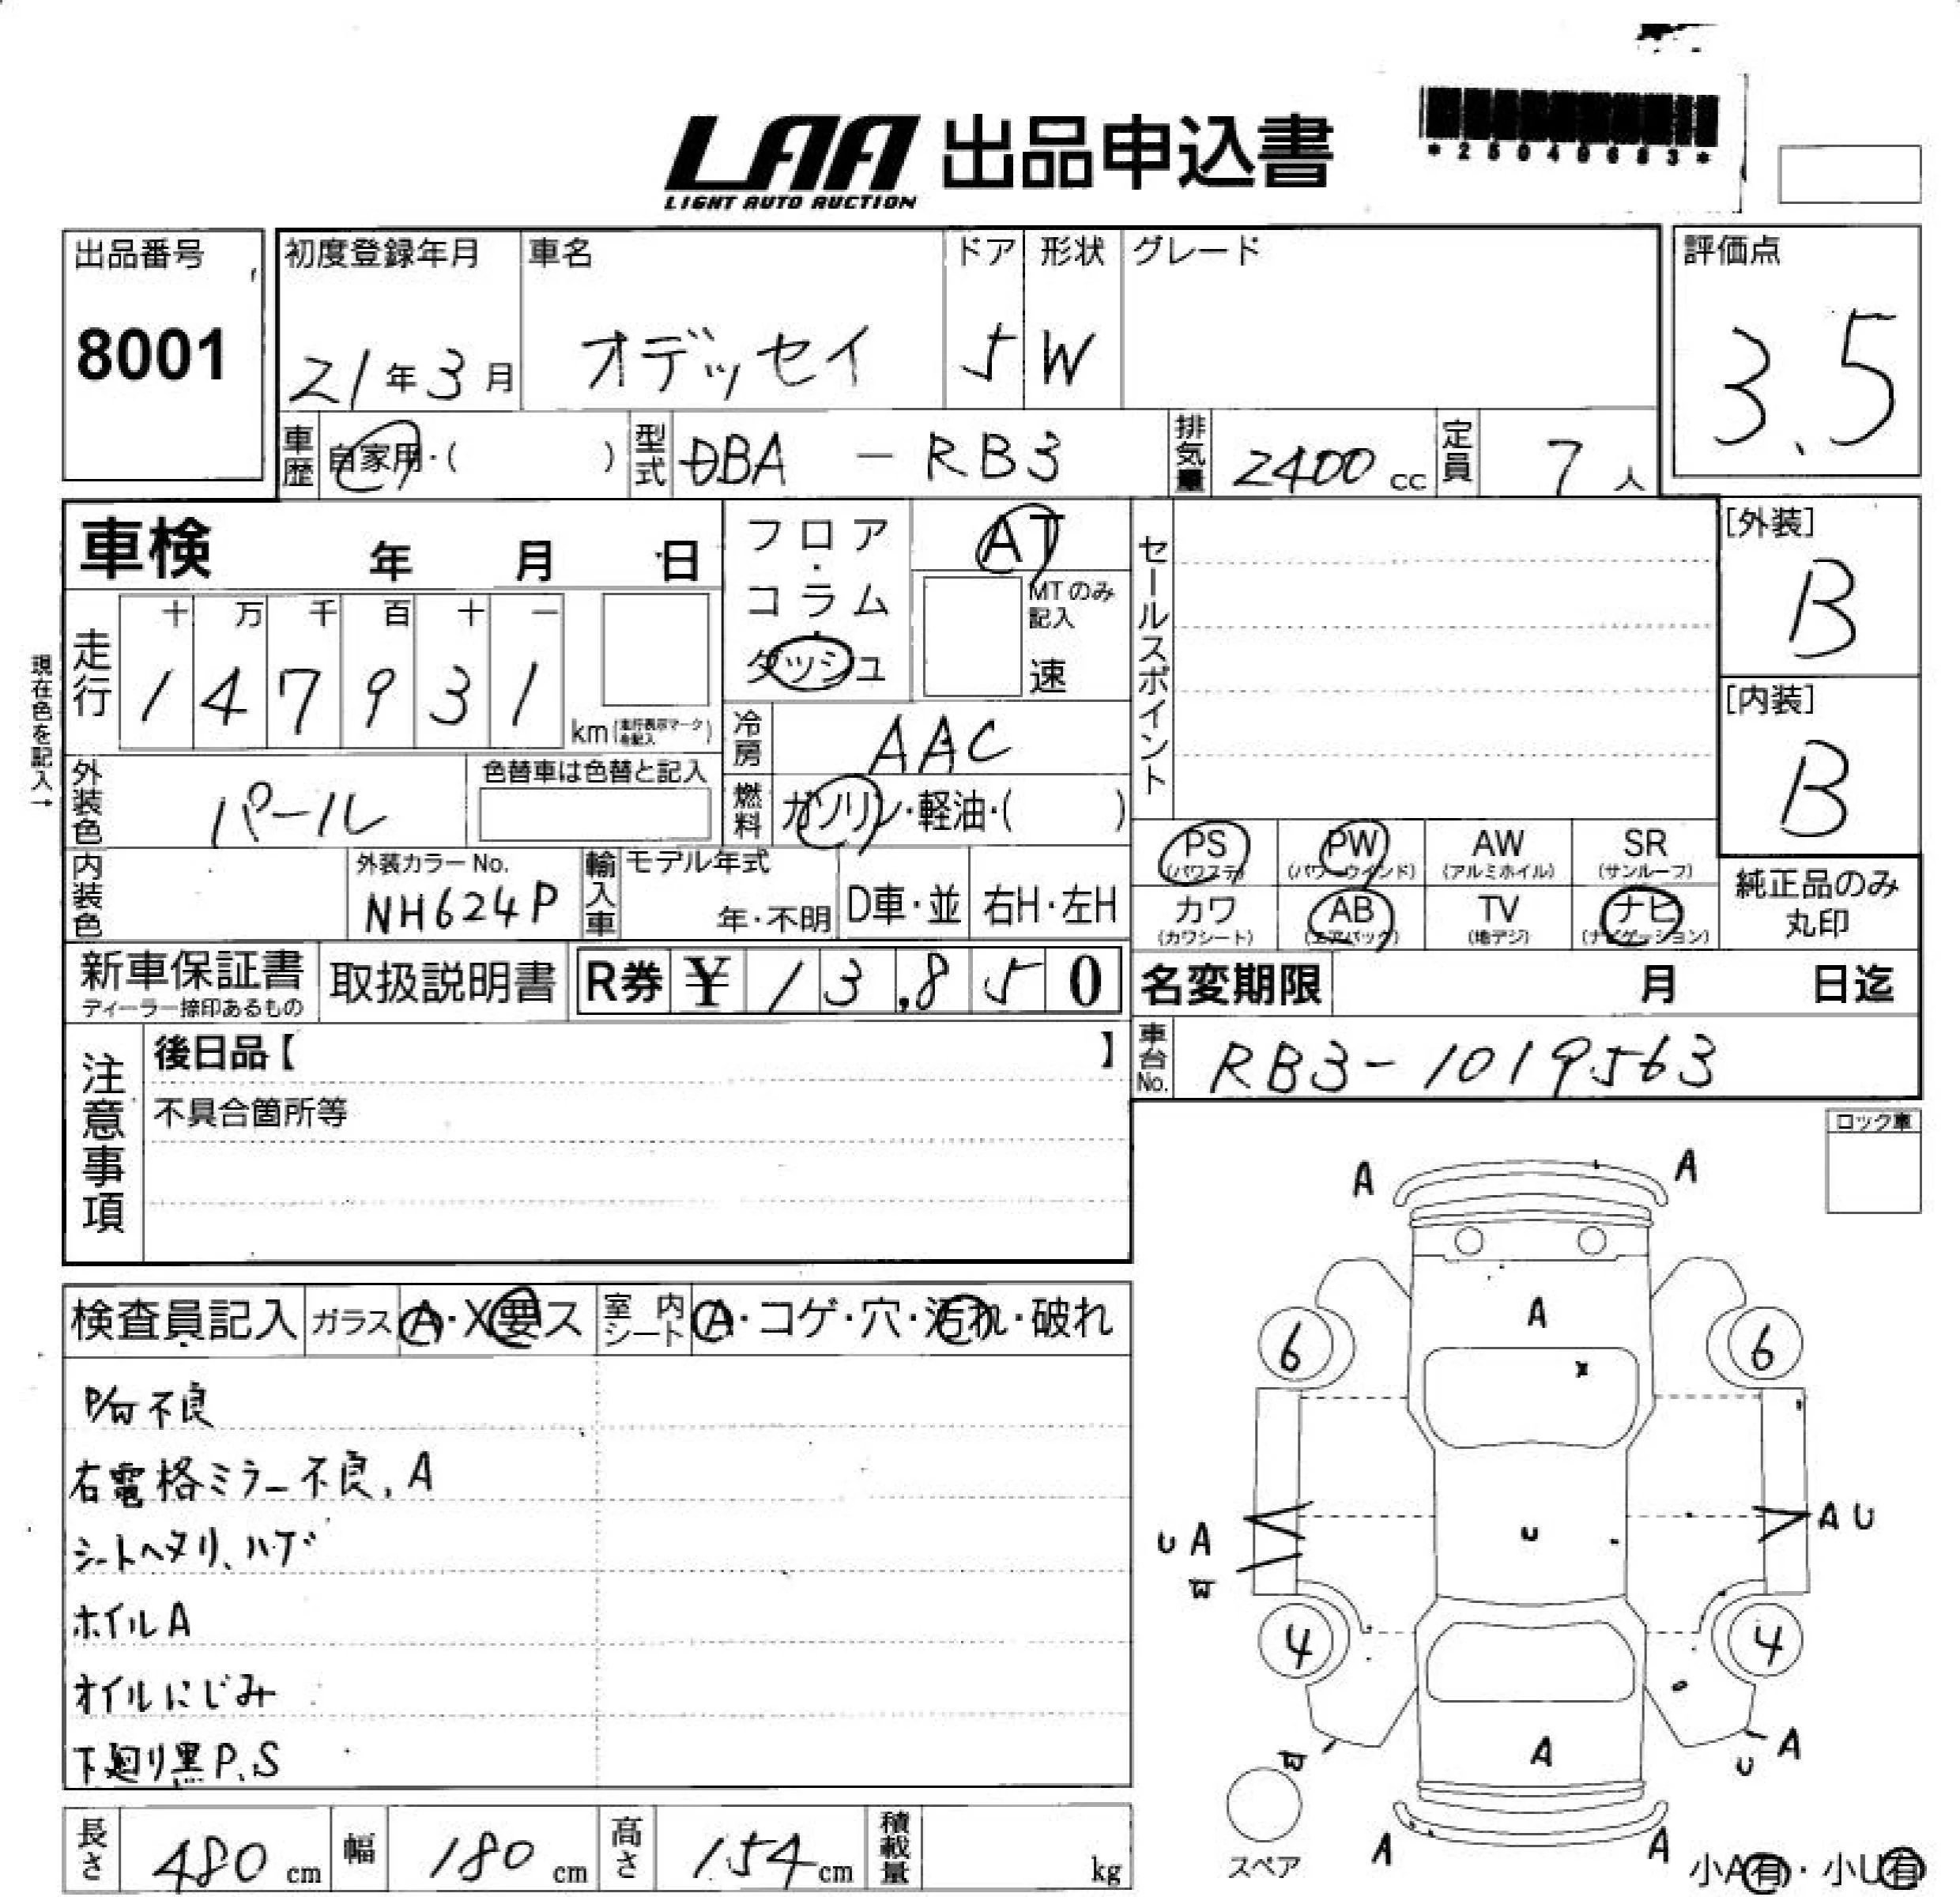 LAA 出品申込書
LIGHT AUTO AUCTION
出品番号 初度登録年月 車名 ドア 形状 グレード 評価点
8001 21年3月 オデッセイ 5 W 3.5
車歴 自家用・( ) 型式 DBA - RB3 排気量 2400cc 定員 7人
車検 年 月 日 フロア・コラム・ダッシュ AT セールスポイント [外装]
B
MTのみ記入 速
現在色を記入→
走行 十 万 千 百 十 一
1 4 7 9 3 1 km (走行表示マークを記入)
[内装]
B
冷房 AAC
外装色 パール 色替車は色替と記入 燃料 ガソリン・軽油・( )
PS (パワステ) PW (パワーウインド) AW (アルミホイル) SR (サンルーフ)
内装色 外装カラーNo. NH624P 輸入車 モデル年式 年・不明 D車・並 右H・左H
カワ (カワシート) AB (エアバック) TV (地デジ) ナビ (ナビゲーション)
純正品のみ丸印
新車保証書 ディーラー捺印あるもの 取扱説明書 R券 ¥ 13,850 名変期限 月 日迄
注意事項 後日品【 】 車台No. RB3-1019563
不具合箇所等
ロック車
検査員記入 ガラス A・X要ス 室内シート A・コゲ・穴・汚れ・破れ
不良
右電格ミラー不良、A
シートヘタリ、ハゲ
ホイルA
オイルにじみ
下廻り黒P、S
A A
A
6 6
x
U A AU
U
W
4 4
A A
W U
スペア
A A
小A有・小U有
長さ 480cm 幅 180cm 高さ 154cm 積載量 kg